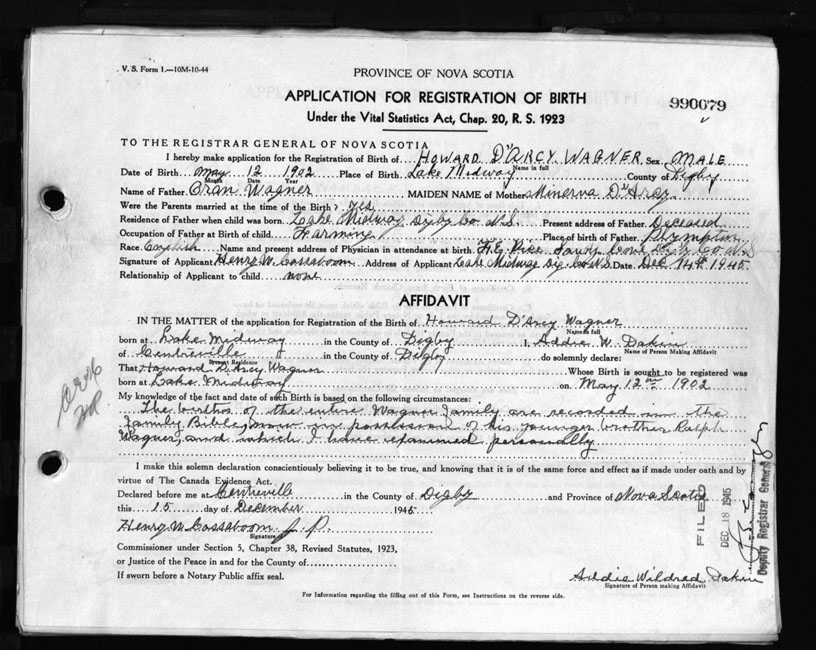 V. S. Form 1.—10M-10-44
PROVINCE OF NOVA SCOTIA
APPLICATION FOR REGISTRATION OF BIRTH
990079
Under the Vital Statistics Act, Chap. 20, R. S. 1923
TO THE REGISTRAR GENERAL OF NOVA SCOTIA
I hereby make application for the Registration of Birth of HOWARD D'ARCY WAGNER Sex MALE
Name in full
Date of Birth May 12 1902 Place of Birth Lake Midway County of Digby
Month Date Year
Name of Father Oran Wagner MAIDEN NAME of Mother Minerva D'Arcy
Were the Parents married at the time of the Birth? yes
Residence of Father when child was born. Lake Midway Digby Co N.S. Present address of Father Deceased
Occupation of Father at Birth of child. Farming Place of birth of Father
Race English Name and present address of Physician in attendance at birth F.E. Rice Sandy Cove Digby Co N.S
Signature of Applicant Henry W. Cossaboom Address of Applicant Lake Midway Dig. Co N.S. Date Dec 14th 1945
Relationship of Applicant to child none
AFFIDAVIT
IN THE MATTER of the application for Registration of the Birth of Howard D'Arcy Wagner
Name in full
born at Lake Midway in the County of Digby I, Addie W. Dakin
Name of Person Making Affidavit
of Centreville in the County of Digby do solemnly declare:
Present Residence
That Howard D'Arcy Wagner Whose Birth is sought to be registered was
born at Lake Midway on May 12th 1902
My knowledge of the fact and date of such Birth is based on the following circumstances:
The births of the entire Wagner family are recorded in the
family Bible, now in possession of his younger brother Ralph
Wagner, and which I have examined personally
I make this solemn declaration conscientiously believing it to be true, and knowing that it is of the same force and effect as if made under oath and by
virtue of The Canada Evidence Act.
Declared before me at Centreville in the County of Digby and Province of Nova Scotia
this 15 day of December 1945
Henry W Cossaboom J. P.
Signature
Commissioner under Section 5, Chapter 38, Revised Statutes, 1923,
or Justice of the Peace in and for the County of
If sworn before a Notary Public affix seal.
Addie Wildred Dakin
Signature of Person making Affidavit
For Information regarding the filling out of this Form, see Instructions on the reverse side.
FILED
DEC 18 1945
Deputy Registrar General